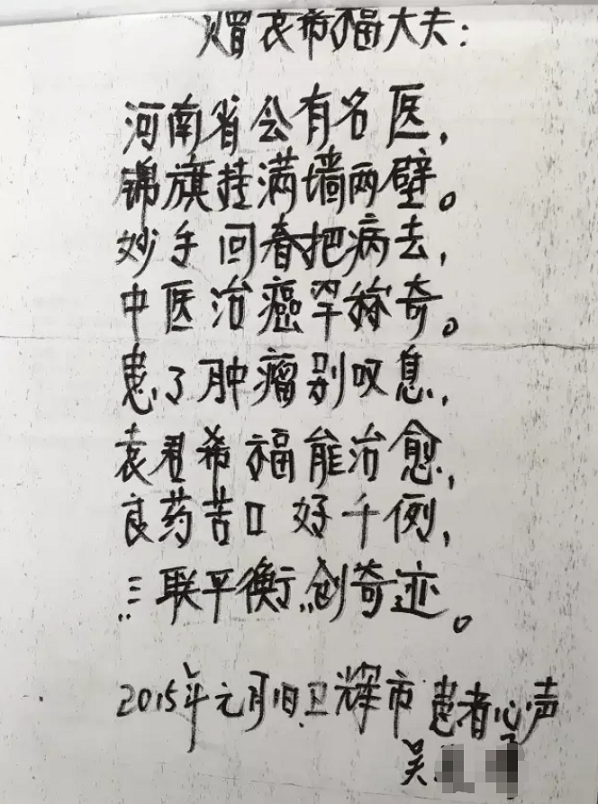 赠袁希福大夫：
河南省会有名医，
锦旗挂满墙两壁。
妙手回春把病去，
中医治癌罕称奇。
患了肿瘤别叹息，
袁君希福能治愈，
良药苦口好千例，
“三联平衡”创奇迹。
2015年元月1日卫辉市 患者心声
吴